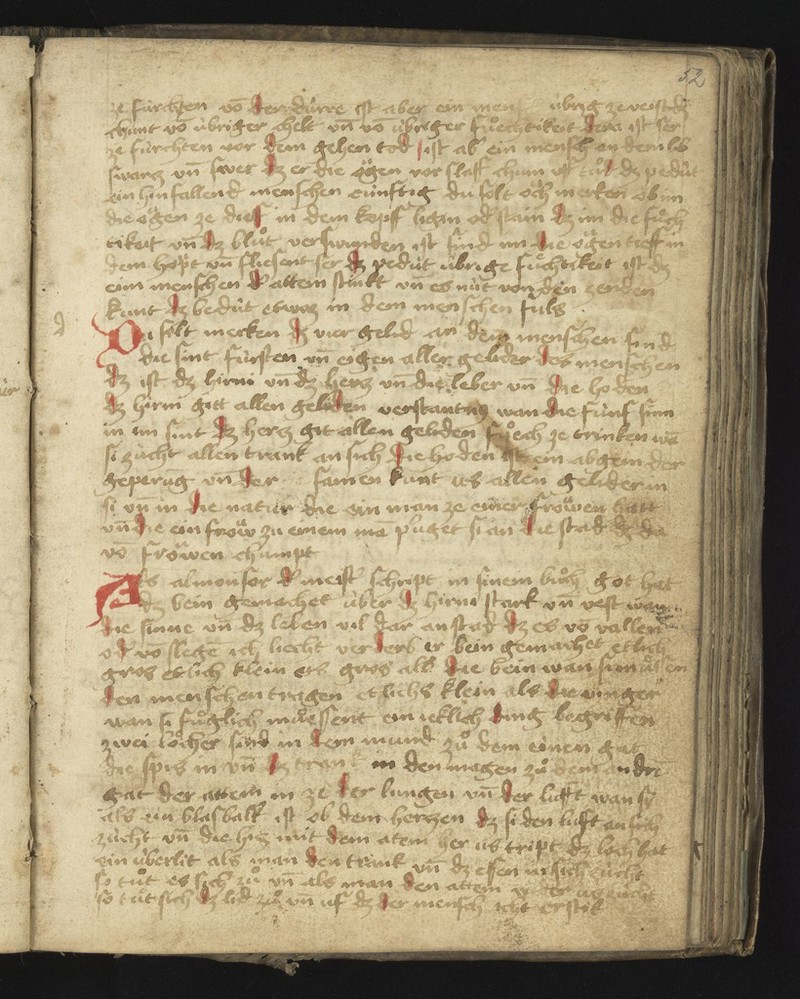 52
ze fürchten võ der dürre ist aber ein mensch übrig ze verstẽ
chunt võ übriger chelt vñ võ übriger fuͦechtikeit dera ist ser
ze fürchten vor dem gehen tod ist ab ein mensch an dem lib
swarz vñ swer dz er die oͤgen vor slaff chum vff tuͦt dz pedüt
ein hinfallend menschen künftig du solt och merken ob im
die oͤgen ze dieff in dem kopff ligin od stain dz im die fuͤch
tikeit vñ dz bluͦt verswunden ist sind im die oͤgen tieff in
dem hopt vñ fliesent ser dz pedüt übrige fuͤchtikeit ist dz
eim menschen d' attem stinkt vñ es nüt von den zenden
kunt dz bedüt etwaz in dem menschen fuls
Du solt merken dz vier gelid an dem menschen sind
die sint fürsten vñ eigen aller gelider des menschen
dz ist dz hirni vñ dz herz vñ die leber vñ die hoden
dz hirni gitt allen geliden verstantnuz wan die fünf sinn
in im sint dz herz git allen geliden fuͦech ze trinken wã
si zücht allen trank an sich die hoden ist ein abgem der
geperug vñ der samen kunt us allen gelidern in
si vñ in die natur die ein man ze einer froͤwen hatt
vñ die ein froͤw zu einem mã pfliget si an die stad dz da
võ froͤwen chumpt
Als almonsor d' meist' schript in sinem buͦch got hat
dz bein gemachet über dz hirni stark vñ vest wan
die sinne vñ dz leben vil dar an stad dz es võ vallen
od' võ slegẽ ich liecht verderb er bein gemachet etlich
gros etlich klein etl gros als die bein wan si muͤssen
den menschen tragen etlichs klein als die vinger
wan si fuͦglich muͤssent ein ieklich ding begriffen
zwei loͤcher sind in dem mund zuͦ dem einen gat
die spis in vñ dz trank in den magen zuͦ dem andrẽ
gat der attem in ze der lungen vñ der lufft wan sy
als ein blasbalk ist ob dem herzen dz si den lufft an sich
zücht vñ die hiz mit dem atem her us tript dz loch hat
ein überlit als man den trank vñ dz essen in sich zücht
so tuͦt es sich zuͦ vñ als man den attem wider uszücht
so tuͦt sich dz lid zuͦ vñ uf dz der mensch icht erstik